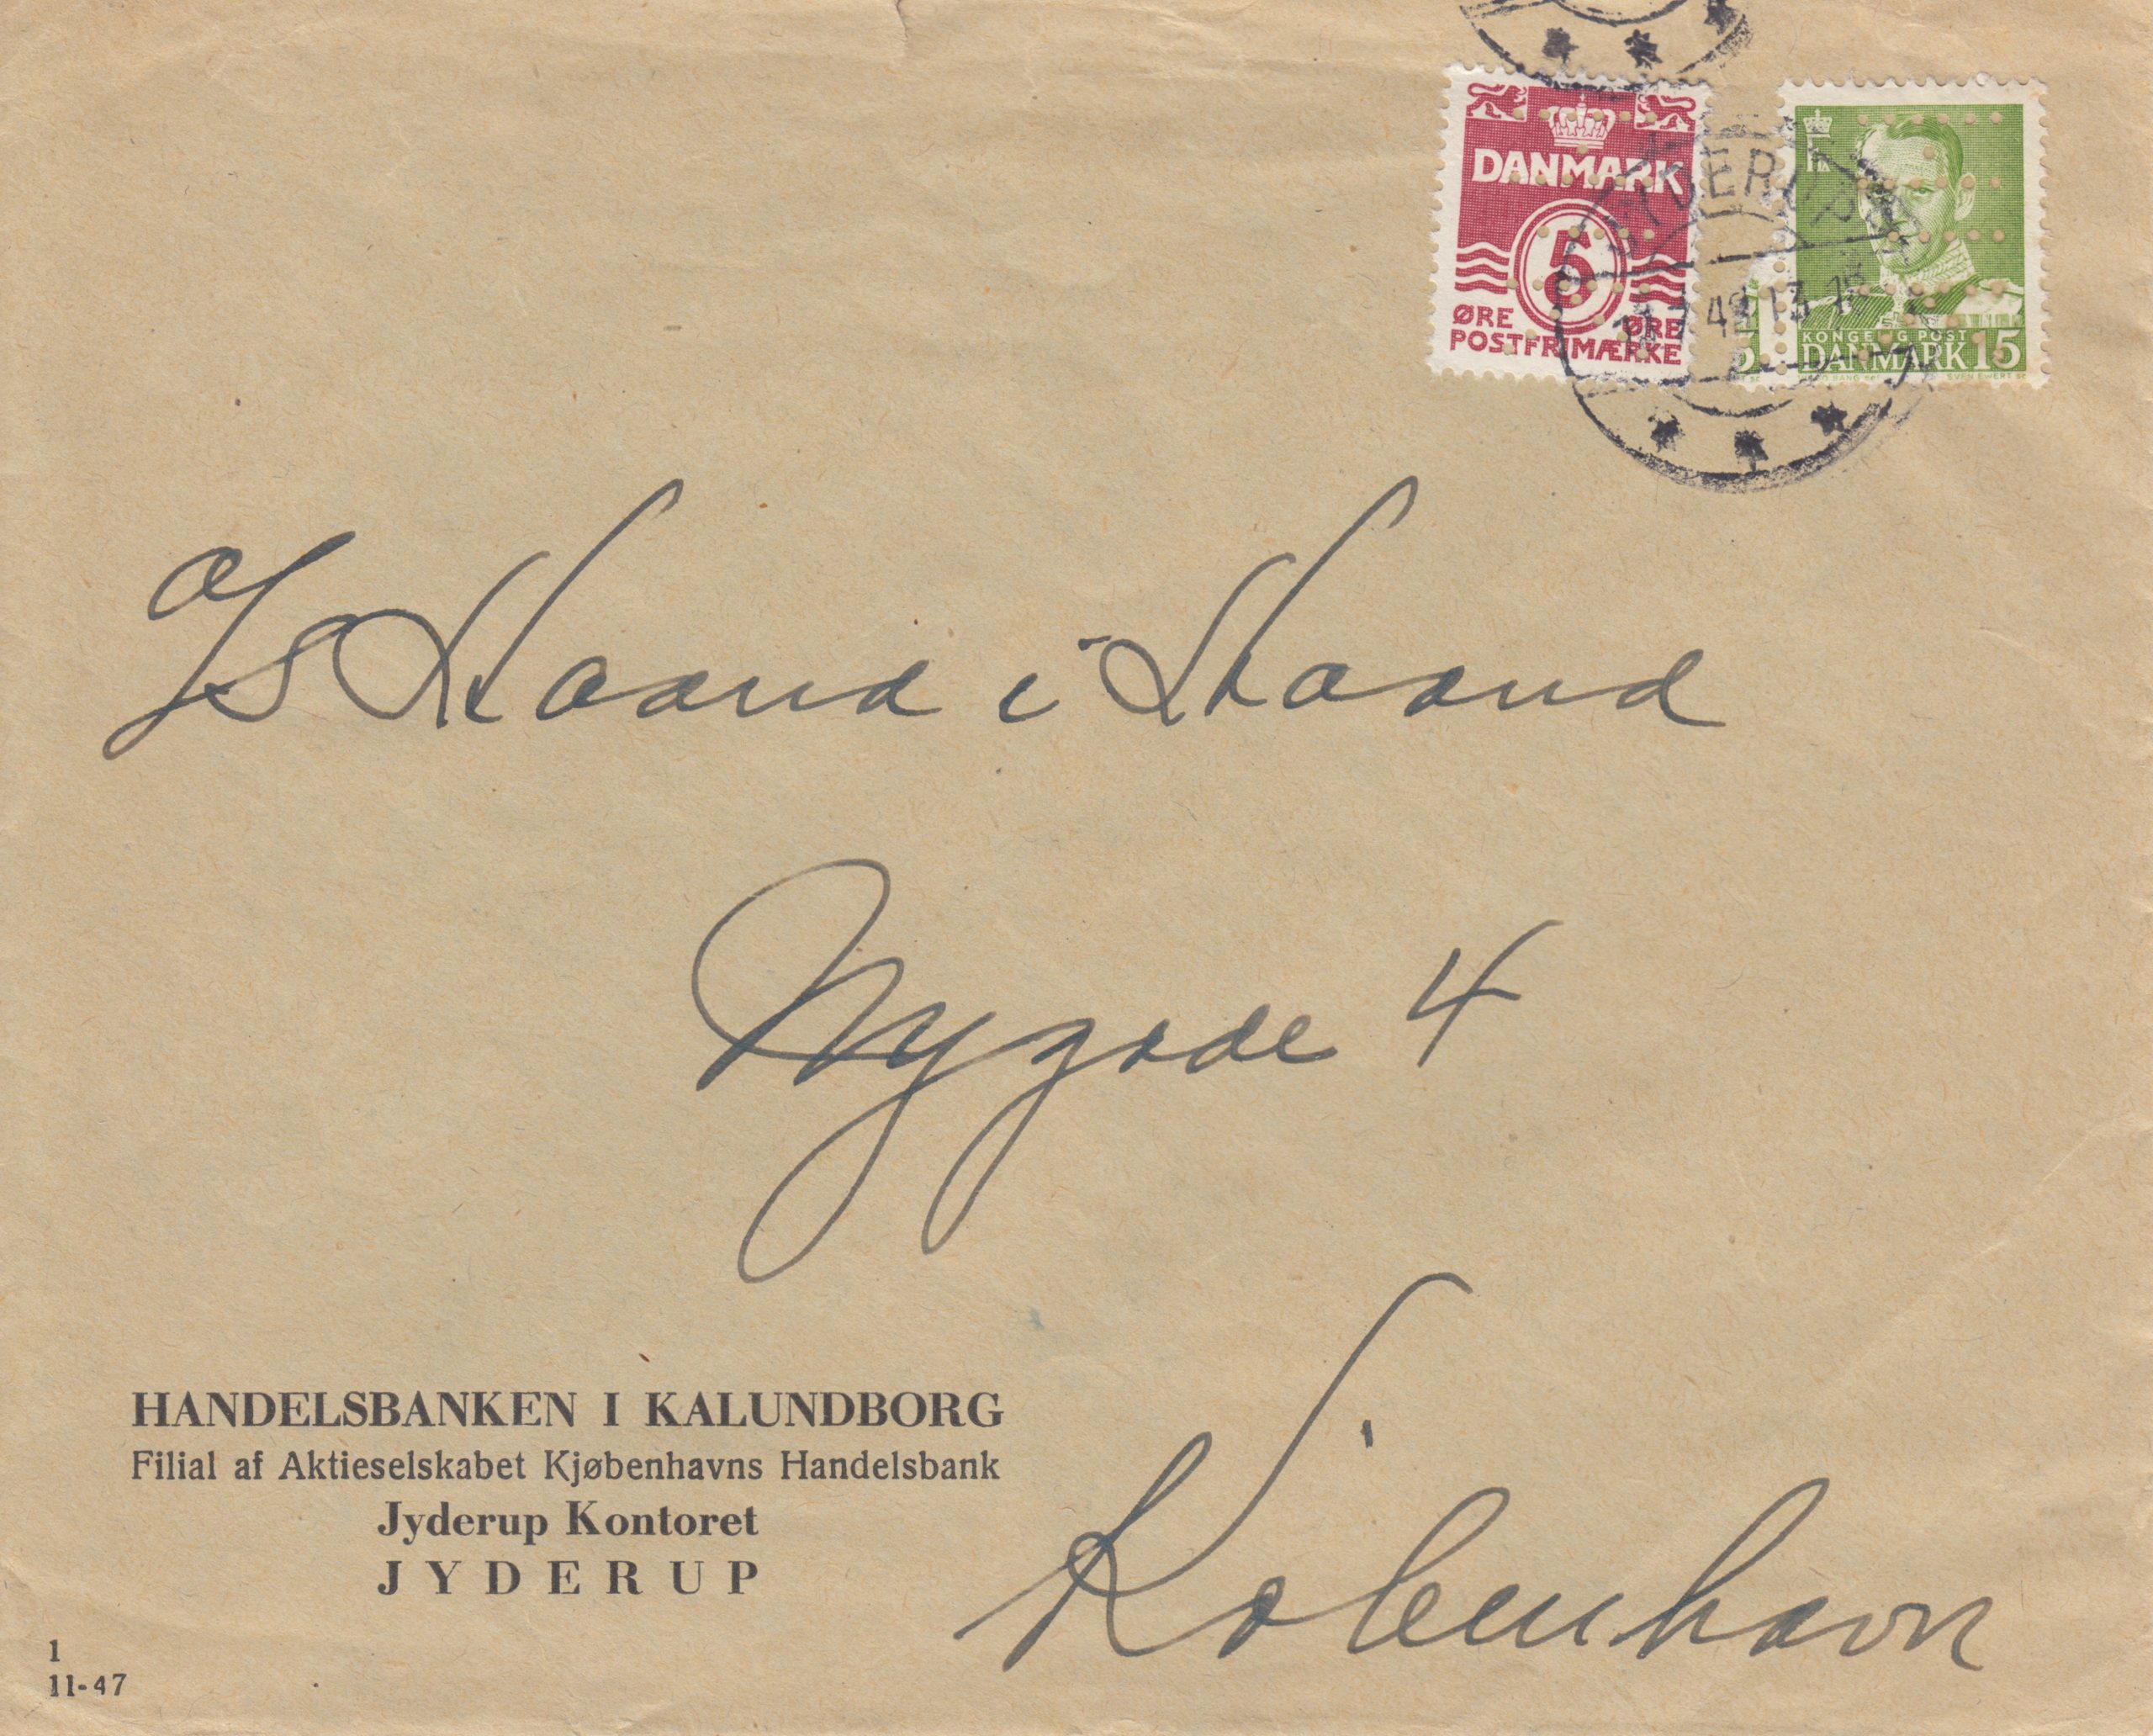 DANMARK
5
ØRE ØRE
POSTFRIMÆRKE
KONGELIG POST
DANMARK 15
JYDERUP
13-15
A/S Haand i Haand
Nygade 4
København
HANDELSBANKEN I KALUNDBORG
Filial af Aktieselskabet Kjøbenhavns Handelsbank
Jyderup Kontoret
JYDERUP
1
11-47